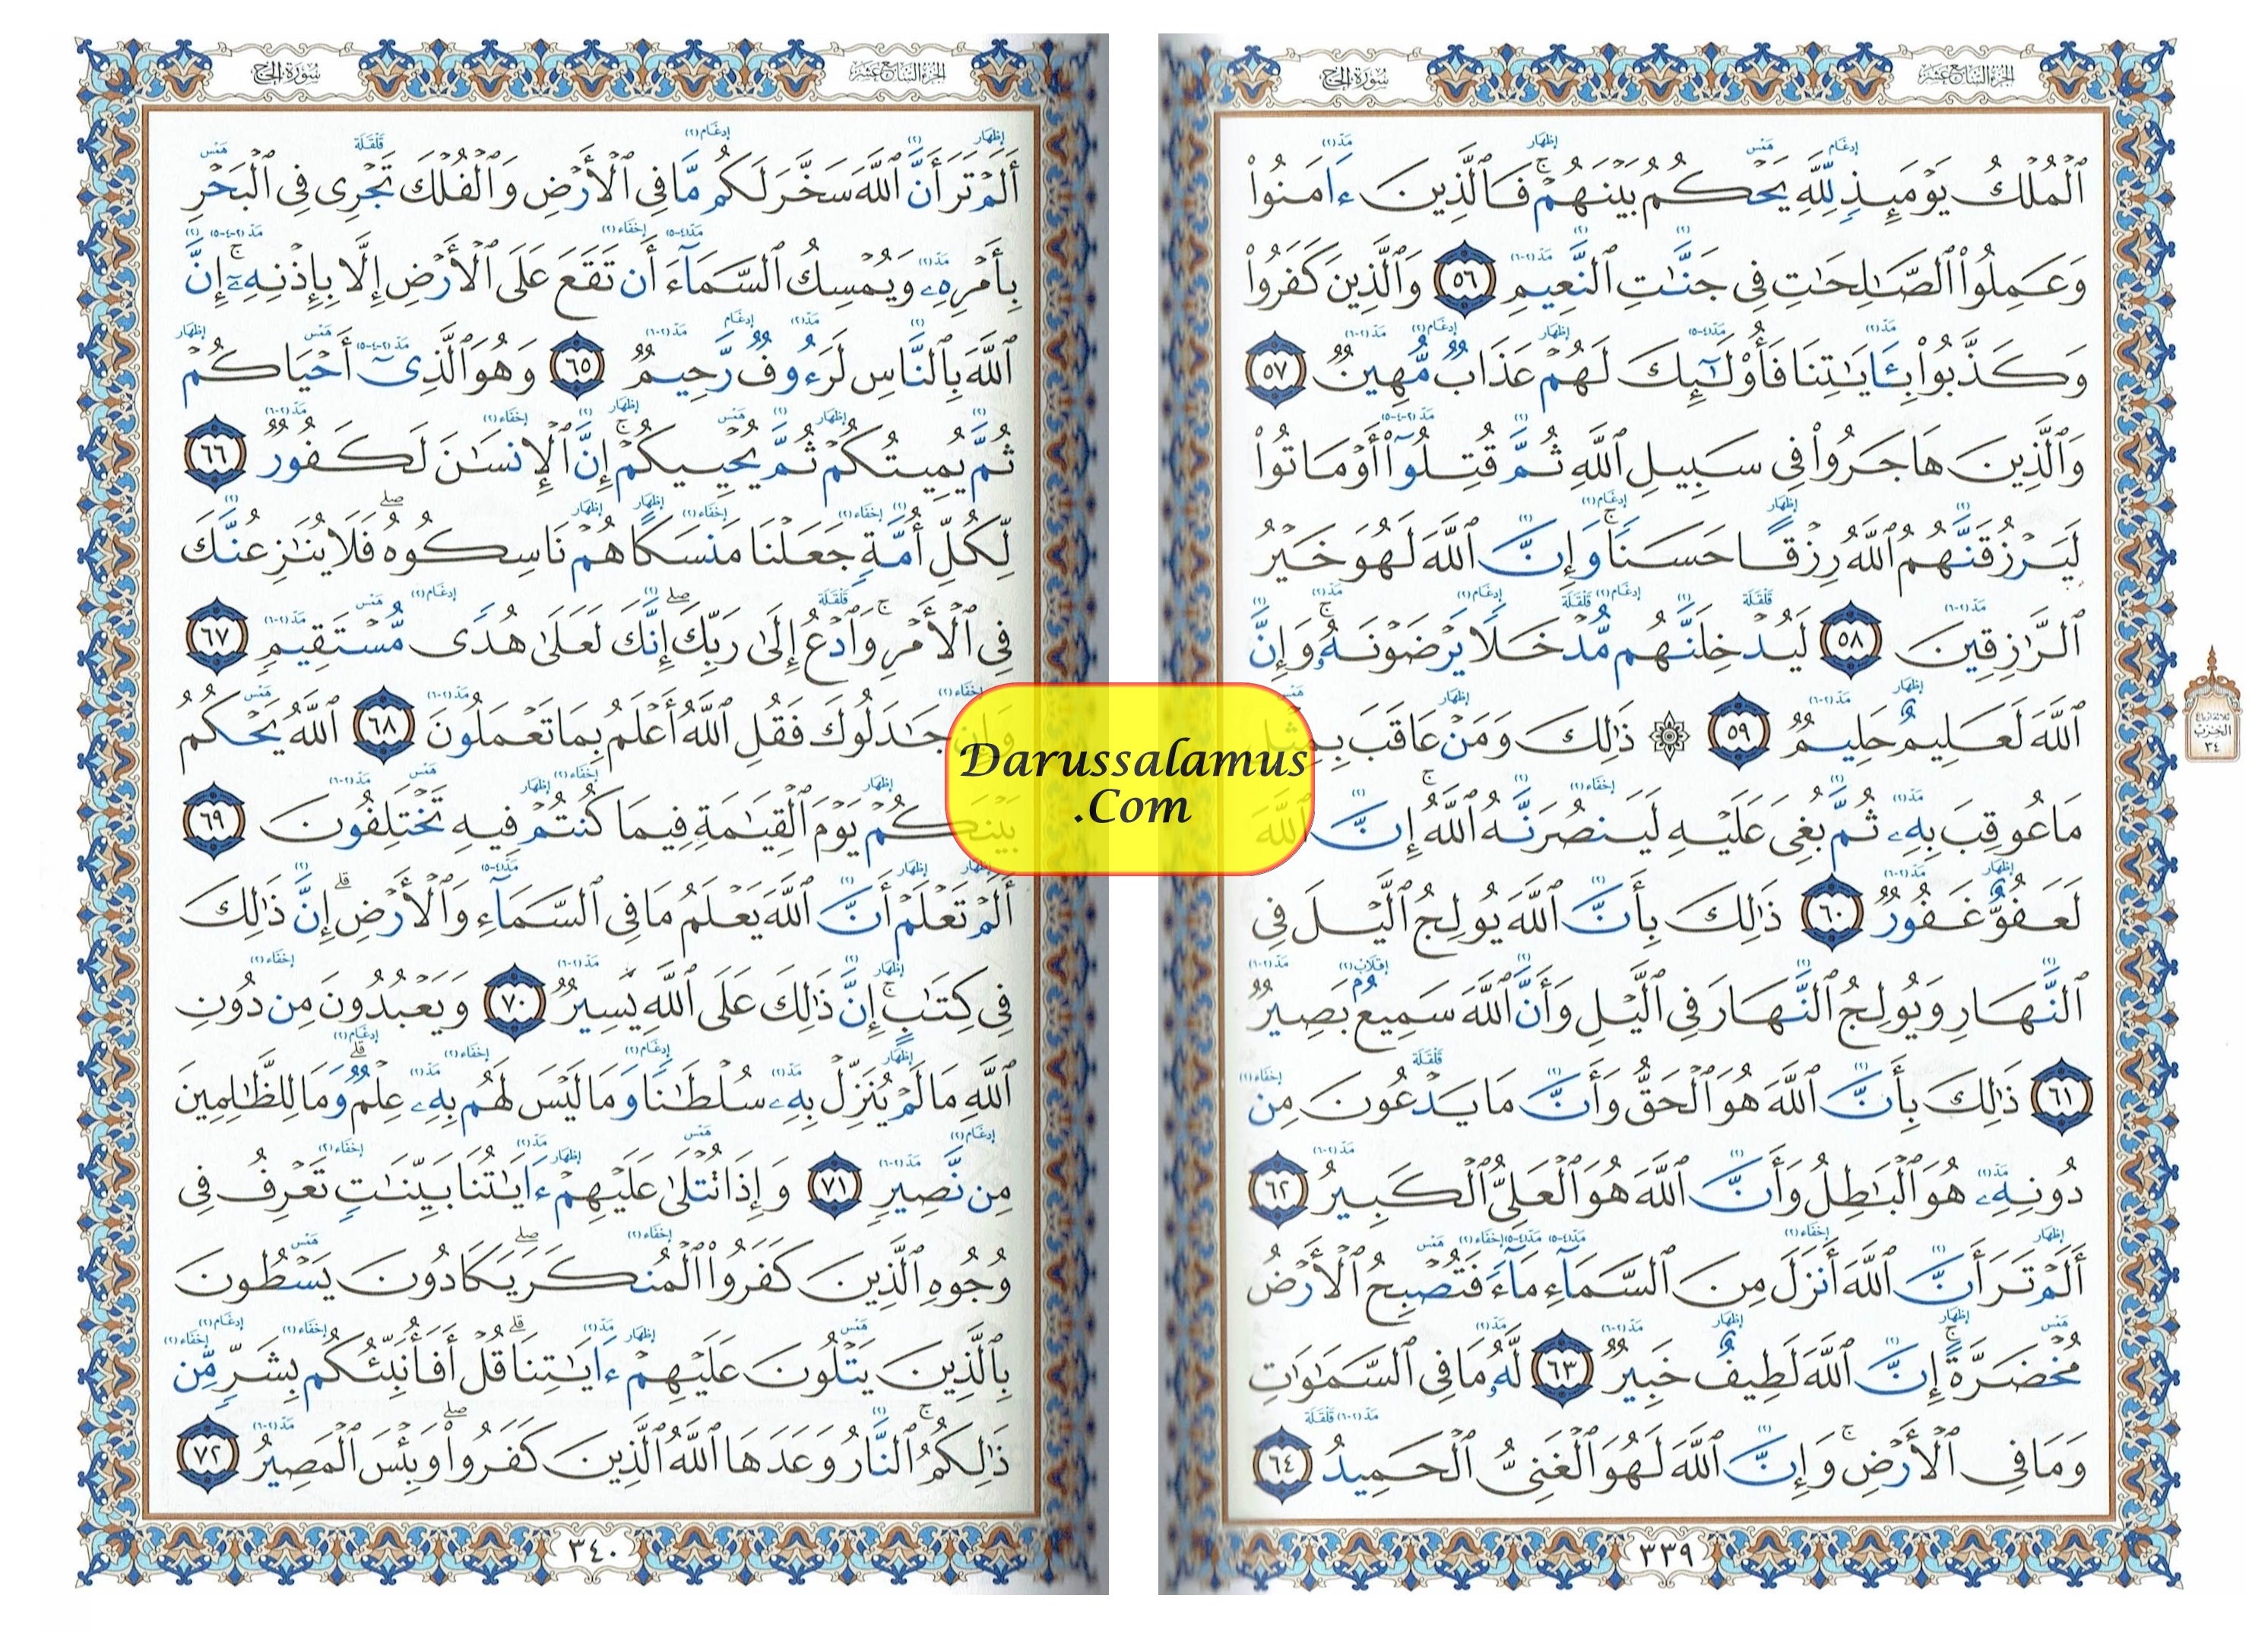 الجزء السابع عشر
سورة الحج
ٱلْمُلْكُ يَوْمَئِذٍ لِّلَّهِ يَحْكُمُ بَيْنَهُمْ ۚ فَٱلَّذِينَ ءَامَنُوا۟
وَعَمِلُوا۟ ٱلصَّـٰلِحَـٰتِ فِى جَنَّـٰتِ ٱلنَّعِيمِ ٥٦ وَٱلَّذِينَ كَفَرُوا۟
وَكَذَّبُوا۟ بِـَٔايَـٰتِنَا فَأُو۟لَـٰٓئِكَ لَهُمْ عَذَابٌ مُّهِينٌ ٥٧
وَٱلَّذِينَ هَاجَرُوا۟ فِى سَبِيلِ ٱللَّهِ ثُمَّ قُتِلُوٓا۟ أَوْ مَاتُوا۟
لَيَرْزُقَنَّهُمُ ٱللَّهُ رِزْقًا حَسَنًا ۚ وَإِنَّ ٱللَّهَ لَهُوَ خَيْرُ
ٱلرَّٰزِقِينَ ٥٨ لَيُدْخِلَنَّهُم مُّدْخَلًا يَرْضَوْنَهُۥ ۚ وَإِنَّ
ٱللَّهَ لَعَلِيمٌ حَلِيمٌ ٥٩ ۞ ذَٰلِكَ وَمَنْ عَاقَبَ بِمِثْلِ
مَا عُوقِبَ بِهِۦ ثُمَّ بُغِىَ عَلَيْهِ لَيَنصُرَنَّهُ ٱللَّهُ ۚ إِنَّ ٱللَّهَ
لَعَفُوٌّ غَفُورٌ ٦٠ ذَٰلِكَ بِأَنَّ ٱللَّهَ يُولِجُ ٱلَّيْلَ فِى
ٱلنَّهَارِ وَيُولِجُ ٱلنَّهَارَ فِى ٱلَّيْلِ وَأَنَّ ٱللَّهَ سَمِيعٌۢ بَصِيرٌ
٦١ ذَٰلِكَ بِأَنَّ ٱللَّهَ هُوَ ٱلْحَقُّ وَأَنَّ مَا يَدْعُونَ مِن
دُونِهِۦ هُوَ ٱلْبَـٰطِلُ وَأَنَّ ٱللَّهَ هُوَ ٱلْعَلِىُّ ٱلْكَبِيرُ ٦٢
أَلَمْ تَرَ أَنَّ ٱللَّهَ أَنزَلَ مِنَ ٱلسَّمَآءِ مَآءً فَتُصْبِحُ ٱلْأَرْضُ
مُخْضَرَّةً ۗ إِنَّ ٱللَّهَ لَطِيفٌ خَبِيرٌ ٦٣ لَّهُۥ مَا فِى ٱلسَّمَـٰوَٰتِ
وَمَا فِى ٱلْأَرْضِ ۚ وَإِنَّ ٱللَّهَ لَهُوَ ٱلْغَنِىُّ ٱلْحَمِيدُ ٦٤
٣٣٩
الحزب
٣٤
الجزء السابع عشر
سورة الحج
أَلَمْ تَرَ أَنَّ ٱللَّهَ سَخَّرَ لَكُم مَّا فِى ٱلْأَرْضِ وَٱلْفُلْكَ تَجْرِى فِى ٱلْبَحْرِ
بِأَمْرِهِۦ وَيُمْسِكُ ٱلسَّمَآءَ أَن تَقَعَ عَلَى ٱلْأَرْضِ إِلَّا بِإِذْنِهِۦٓ ۚ إِنَّ
ٱللَّهَ بِٱلنَّاسِ لَرَءُوفٌ رَّحِيمٌ ٦٥ وَهُوَ ٱلَّذِىٓ أَحْيَاكُمْ
ثُمَّ يُمِيتُكُمْ ثُمَّ يُحْيِيكُمْ ۚ إِنَّ ٱلْإِنسَـٰنَ لَكَفُورٌ ٦٦
لِّكُلِّ أُمَّةٍ جَعَلْنَا مَنسَكًا هُمْ نَاسِكُوهُ ۖ فَلَا يُنَـٰزِعُنَّكَ
فِى ٱلْأَمْرِ ۚ وَٱدْعُ إِلَىٰ رَبِّكَ ۖ إِنَّكَ لَعَلَىٰ هُدًى مُّسْتَقِيمٍ ٦٧
وَإِن جَـٰدَلُوكَ فَقُلِ ٱللَّهُ أَعْلَمُ بِمَا تَعْمَلُونَ ٦٨ ٱللَّهُ يَحْكُمُ
بَيْنَكُمْ يَوْمَ ٱلْقِيَـٰمَةِ فِيمَا كُنتُمْ فِيهِ تَخْتَلِفُونَ ٦٩
أَلَمْ تَعْلَمْ أَنَّ ٱللَّهَ يَعْلَمُ مَا فِى ٱلسَّمَآءِ وَٱلْأَرْضِ ۗ إِنَّ ذَٰلِكَ
فِى كِتَـٰبٍ ۚ إِنَّ ذَٰلِكَ عَلَى ٱللَّهِ يَسِيرٌ ٧٠ وَيَعْبُدُونَ مِن دُونِ
ٱللَّهِ مَا لَمْ يُنَزِّلْ بِهِۦ سُلْطَـٰنًا وَمَا لَيْسَ لَهُم بِهِۦ عِلْمٌ ۗ وَمَا لِلظَّـٰلِمِينَ
مِن نَّصِيرٍ ٧١ وَإِذَا تُتْلَىٰ عَلَيْهِمْ ءَايَـٰتُنَا بَيِّنَـٰتٍ تَعْرِفُ فِى
وُجُوهِ ٱلَّذِينَ كَفَرُوا۟ ٱلْمُنكَرَ ۖ يَكَادُونَ يَسْطُونَ
بِٱلَّذِينَ يَتْلُونَ عَلَيْهِمْ ءَايَـٰتِنَا ۗ قُلْ أَفَأُنَبِّئُكُم بِشَرٍّ مِّن
ذَٰلِكُمُ ۚ ٱلنَّارُ وَعَدَهَا ٱللَّهُ ٱلَّذِينَ كَفَرُوا۟ ۖ وَبِئْسَ ٱلْمَصِيرُ ٧٢
٣٤٠
Darussalamus
.Com